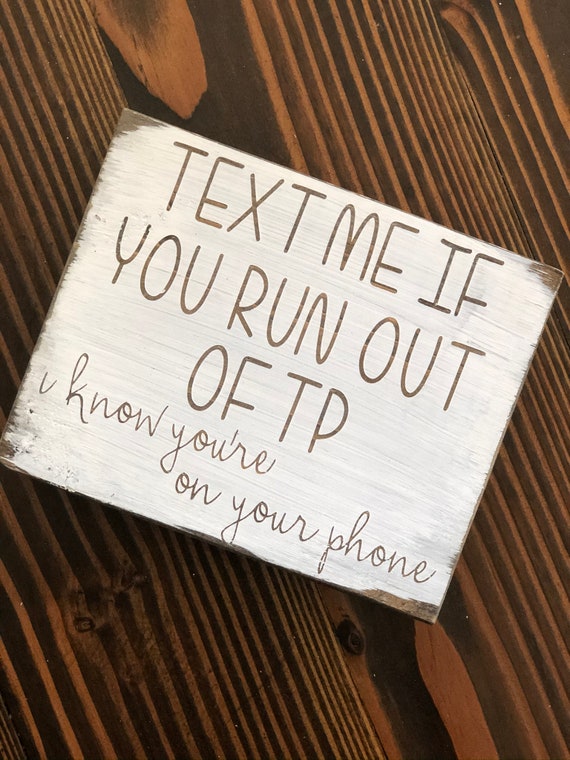 TEXT ME IF
YOU RUN OUT
OF TP
i know you're
on your phone